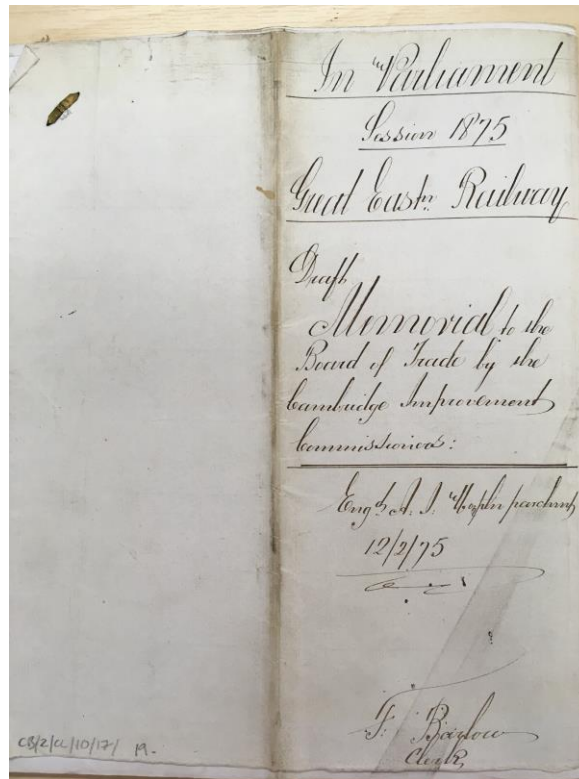 In Parliament
Session 1875
Great Eastn. Railway
Draft
Memorial to the
Board of Trade by the
Cambridge Improvement
Commissioners:
Engd.
12/2/75
F. Barlow
Clerk
CB/2/CL/10/17/ 19.